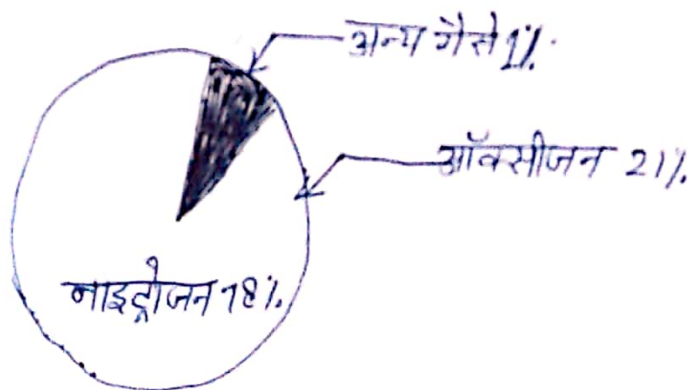 अन्य गैसे 1%.
ऑक्सीजन 21%.
नाइट्रोजन 78%.